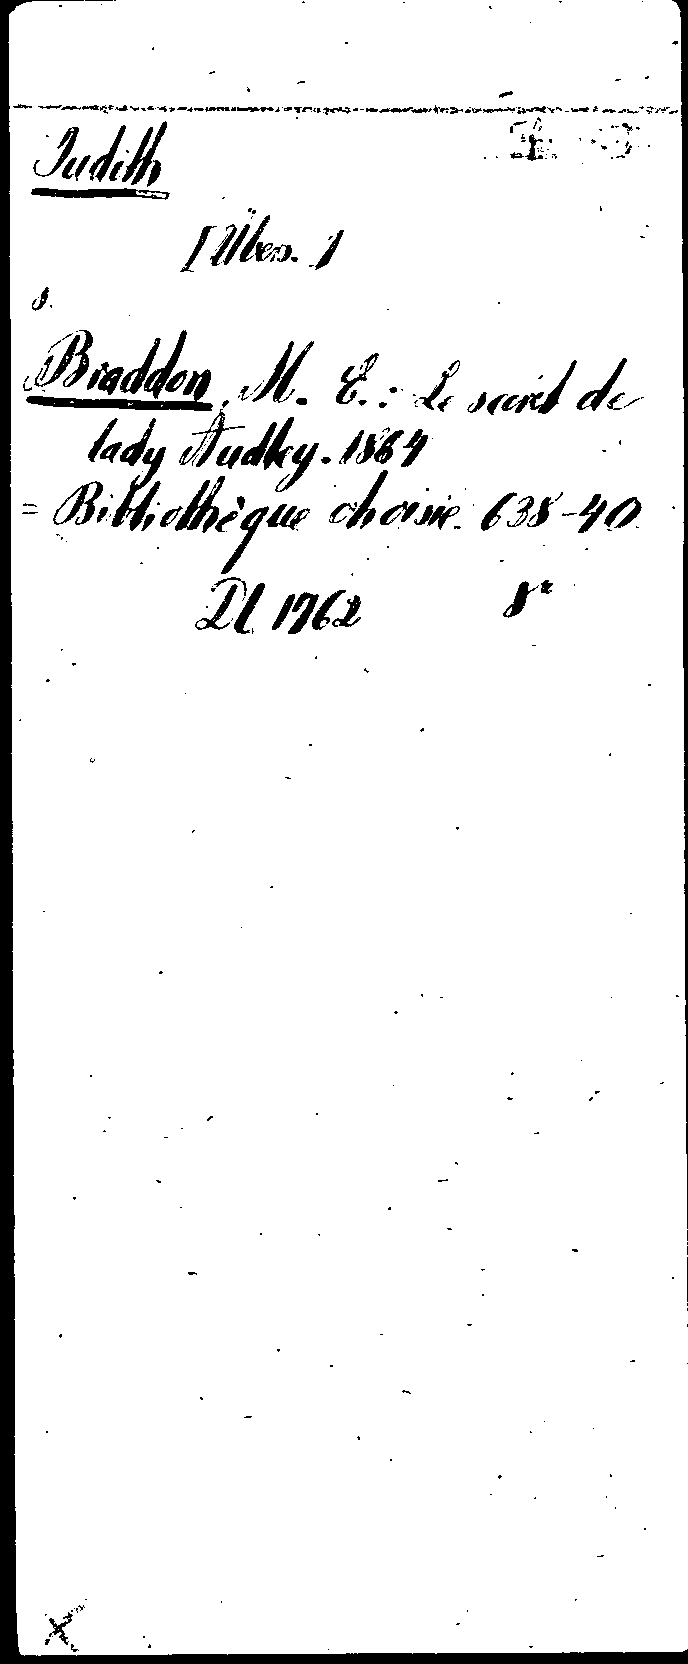 Judith
[Übers.]
s.
Braddon, M. E.: Le secret de
lady Audley. 1864
= Bibliothèque choisie. 638-40
Dl 1762 8°